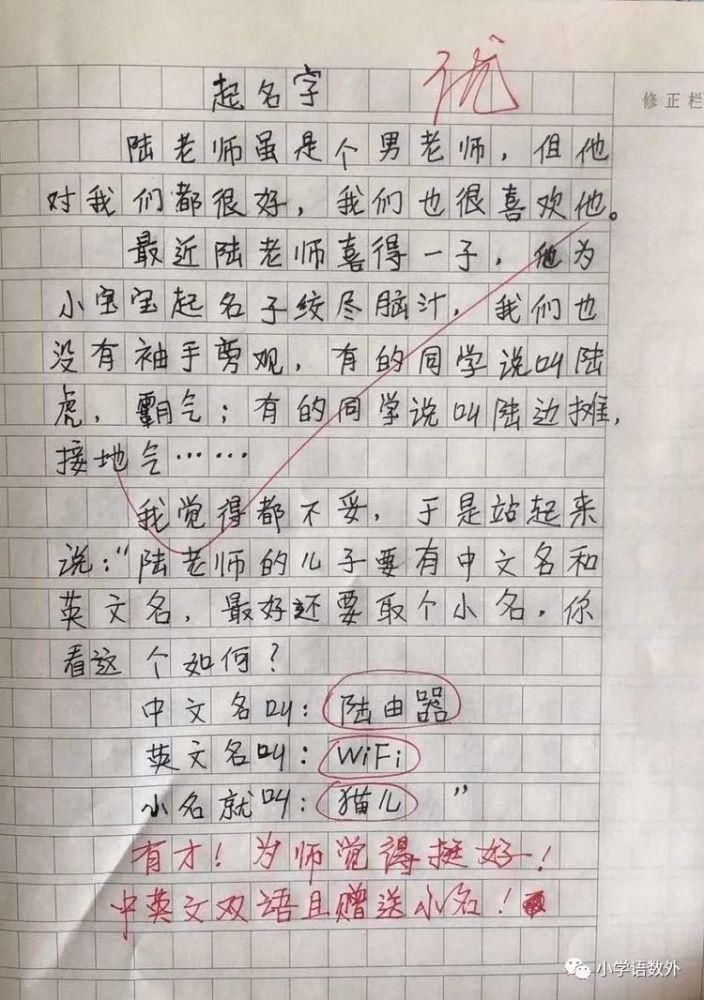 起名字
优
修正栏
陆老师虽是个男老师，但他
对我们都很好，我们也很喜欢他。
最近陆老师喜得一子，他为
小宝宝起名子绞尽脑汁，我们也
没有袖手剪观，有的同学说叫陆
虎，霸气；有的同学说叫陆边摊，
接地气……
我觉得都不妥，于是站起来
说：“陆老师的儿子要有中文名和
英文名，最好还要取个小名，你
看这个如何？
中文名叫：陆由器
英文名叫：WiFi
小名就叫：猫儿”
有才！为师觉得挺好！
中英文双语且赠送小名！
小学语数外